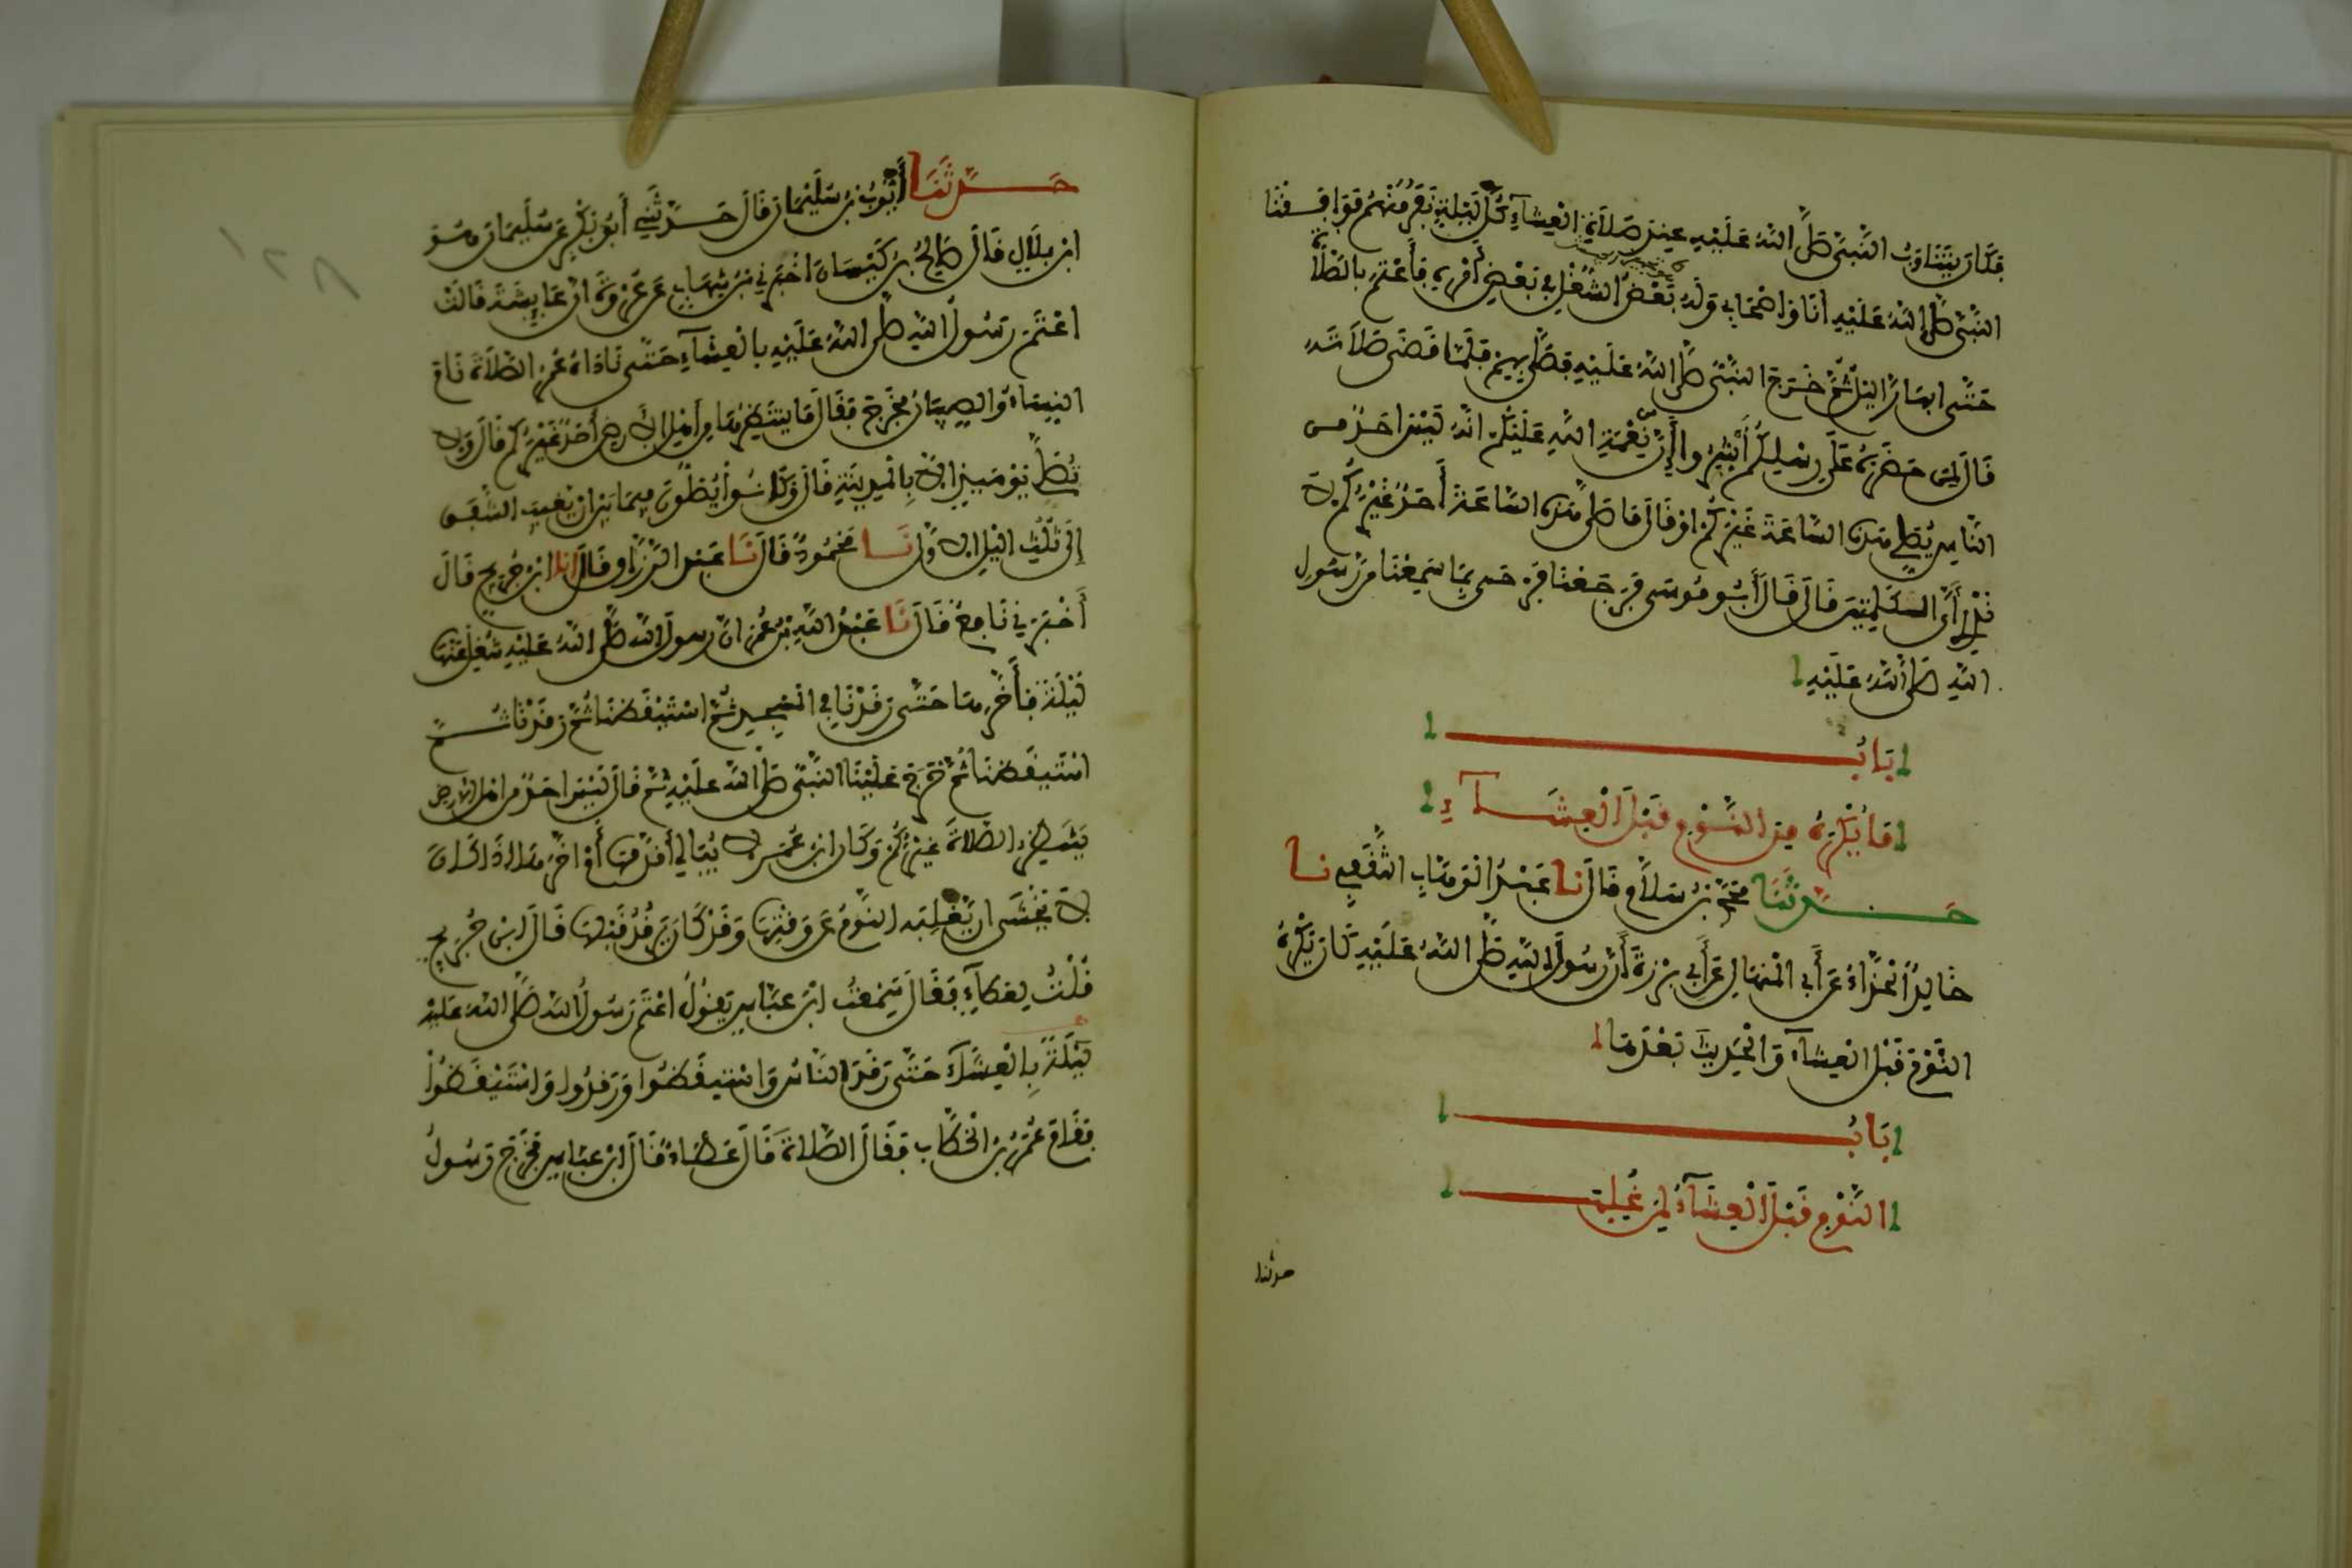 فكان يتناوب النبي صلى الله عليه عند صلاة العشاء كل ليلة نفر منهم فوافقنا
النبي صلى الله عليه انا واصحابي وله بعض الشغل في بعض أمره فأعتم بالصلاة
حتى ابهار اليل ثم خرج النبي صلى الله عليه فصلى بهم فلما قضى صلاته
قال لمن حضره على رسلكم أبشروا إن نعمة الله عليكم انه ليس احد من
الناس يصلي هذه الساعة غيركم او قال ما صلى هذه الساعة أحد غيركم لا
قال قال أبو موسى فرجعنا فرحى بما سمعنا من رسول
الله صلى الله عليه
باب
ما يكره من النوم قبل العشاء
حدثنا محمد بن سلام قال نا عبد الوهاب الثقفي نا
خالد الحذاء عن أبي المنهال عن أبي برزة أن رسول الله صلى الله عليه كان يكره
النوم قبل العشاء والحديث بعدها
باب
النوم قبل العشاء لمن غلب
حدثنا
حدثنا أيوب بن سليمان قال حدثني أبو بكر عن سليمان وهو
ابن بلال قال صالح بن كيسان اخبرني بن شهاب عن عروة ان عايشة قالت
اعتم رسول الله صلى الله عليه بالعشاء حتى ناداه عمر الصلاة نام
النساء والصبيان فخرج فقال ما ينتظرها من أهل الأرض أحد غيركم قال ولا
تصلى يومئذ الا بالمدينة قال وكانوا يصلون فيما بين ان يغيب الشفق
إلى ثلث اليل الاول نا محمود قال نا عبد الرزاق قال انا ابن جريج قال
أخبرني نافع قال نا عبد الله بن عمر ان رسول الله صلى الله عليه شغل عنها
ليلة فأخرها حتى رقدنا في المسجد ثم استيقظنا ثم رقدنا ثم
استيقظنا ثم خرج علينا النبي صلى الله عليه ثم قال ليس احد من اهل الارض
ينتظر الصلاة غيركم وكان ابن عمر لا يبالي أقدمها أم اخرها اذا كان
لا يخشى ان يغلبه النوم عن وقتها وقد كان يرقد قبلها قال ابن جريج
قلت لعطاء فقال سمعت ابن عباس يقول اعتم رسول الله صلى الله عليه
ليلة بالعشاء حتى رقد الناس واستيقظوا ورقدوا واستيقظوا
فقام عمر بن الخطاب فقال الصلاة قال عطاء قال ابن عباس فخرج رسول